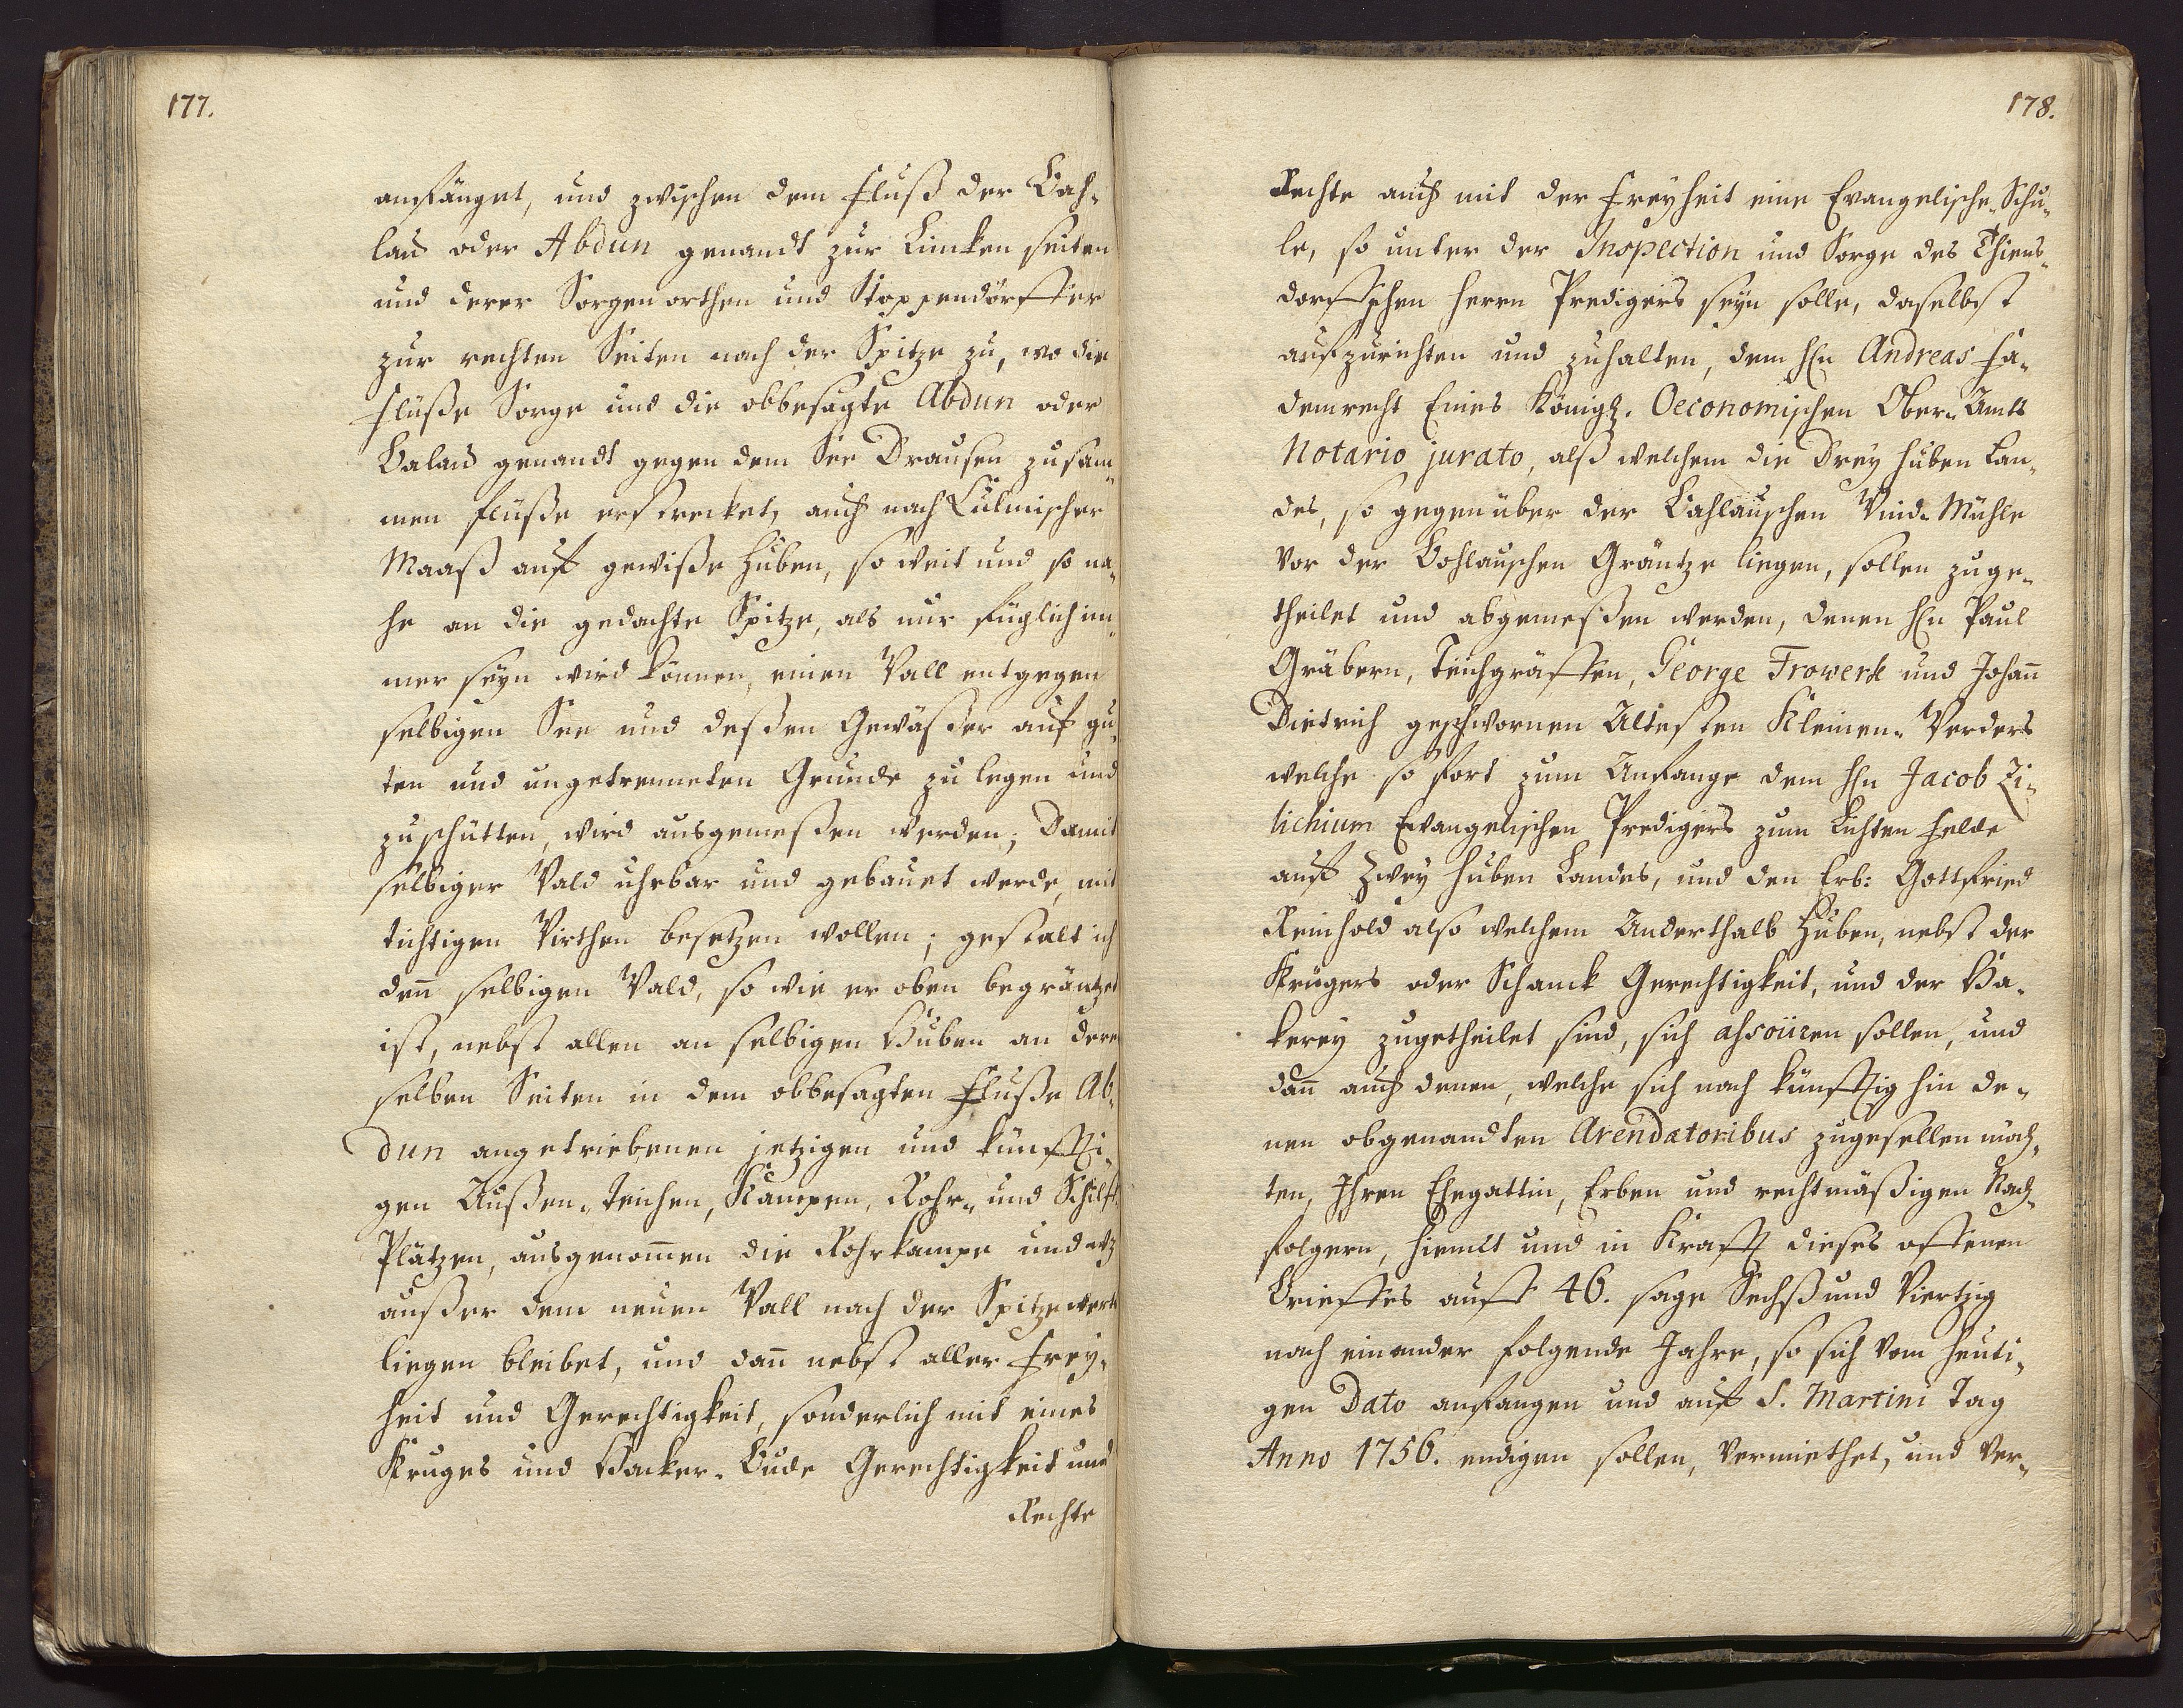 177.
anfänget, und zwischen dem Fluß der Bah-
lau oder Abdun genandt zur Lincken seiten
und derer Sorgenorthen und Stoppendörffer
zur rechten Seiten nach der Spitze zu, wo die
Flüße Sorge und die obbesagte Abdun oder
Balau genandt gegen dem See Drausen zusam-
men flüße erstrecket, auch nach Culmischer
Maaß auf gewiße Huben, so weit und so na-
he an die gedachte Spitze, als nur füglich im-
mer seyn wird können, einen Wall entgegen
selbigen See und deßen Gewäßer auf gu-
ten und ungetrenneten Grunde zu legen und
zuschütten, wird ausgemeßen werden; Damit
selbiger Wald uhrbar und gebauet werde, mit
tichtigen Wirthen besetzen wollen; gestalt ich
den̄ selbigen Wald, so wie er oben begräntzet
ist, nebst allen an selbigen Huben an dere
selben Seiten in dem obbesagten Fluße Ab-
dun angetriebenen jetzigen und künffti-
gen Außen-Teichen, Kampen, Rohr- und Schilff
Plätzen, ausgenom̄en die Rohrkampe und
außer dem neuen Wall nach der Spitze werts
liegen bleibet, und dan̄ nebst aller Frey-
heit und Gerechtigkeit, sonderlich mit eines
Kruges und Backer-Bude Gerechtigkeit und
Rechte
178.
Rechte auch mit der Freyheit eine Evangelische-Schu-
le, so unter der Inspection und Sorge des Thiens-
dorffschen Herrn Predigers seyn solle, daselbst
aufzurichten und zuhalten, dem H̄n Andreas Fa-
demrecht Eines Königl. Oeconomischen Ober-Amts
Notario jurato, alß welchem die Drey Huben Lan-
des, so gegenüber der Bahlauschen Wind-Mühle
vor der Bohlauschen Gräntze liegen, sollen zuge-
theilet und abgemeßen werden, denen H̄n Paul
Gräbern, Teichgräffen, George Frowerk und Johan̄
Dietrich geschwornen Ältesten Kleinen-Werders
welche so fort zum Anfange dem H̄n Jacob Zi-
lichium Evangelischen Predigers zum Lichten Felde
auf Zwey Huben Landes, und den Erb: Gottfried
Reinhold also welchem Anderthalb Huben, nebst der
Krügers oder Schanck Gerechtigkeit, und der Ba-
kerey zugetheilet sind, sich ahsoüren sollen, und
dan̄ auch denen, welche sich nach künfftig hin de-
nen obgenandten Arendatoribus zugesellen möch-
ten, Ihren Ehegattin, Erben und rechtmäßigen Nach-
folgern, hiemit und in Krafft dieses offenen
Brieffes auff 46. sage Sechß und Viertzig
nach einander folgende Jahre, so sich vom heuti-
gen Dato anfangen und auf S. Martini Tag
Anno 1756. endigen sollen, vermiethet, und ver-